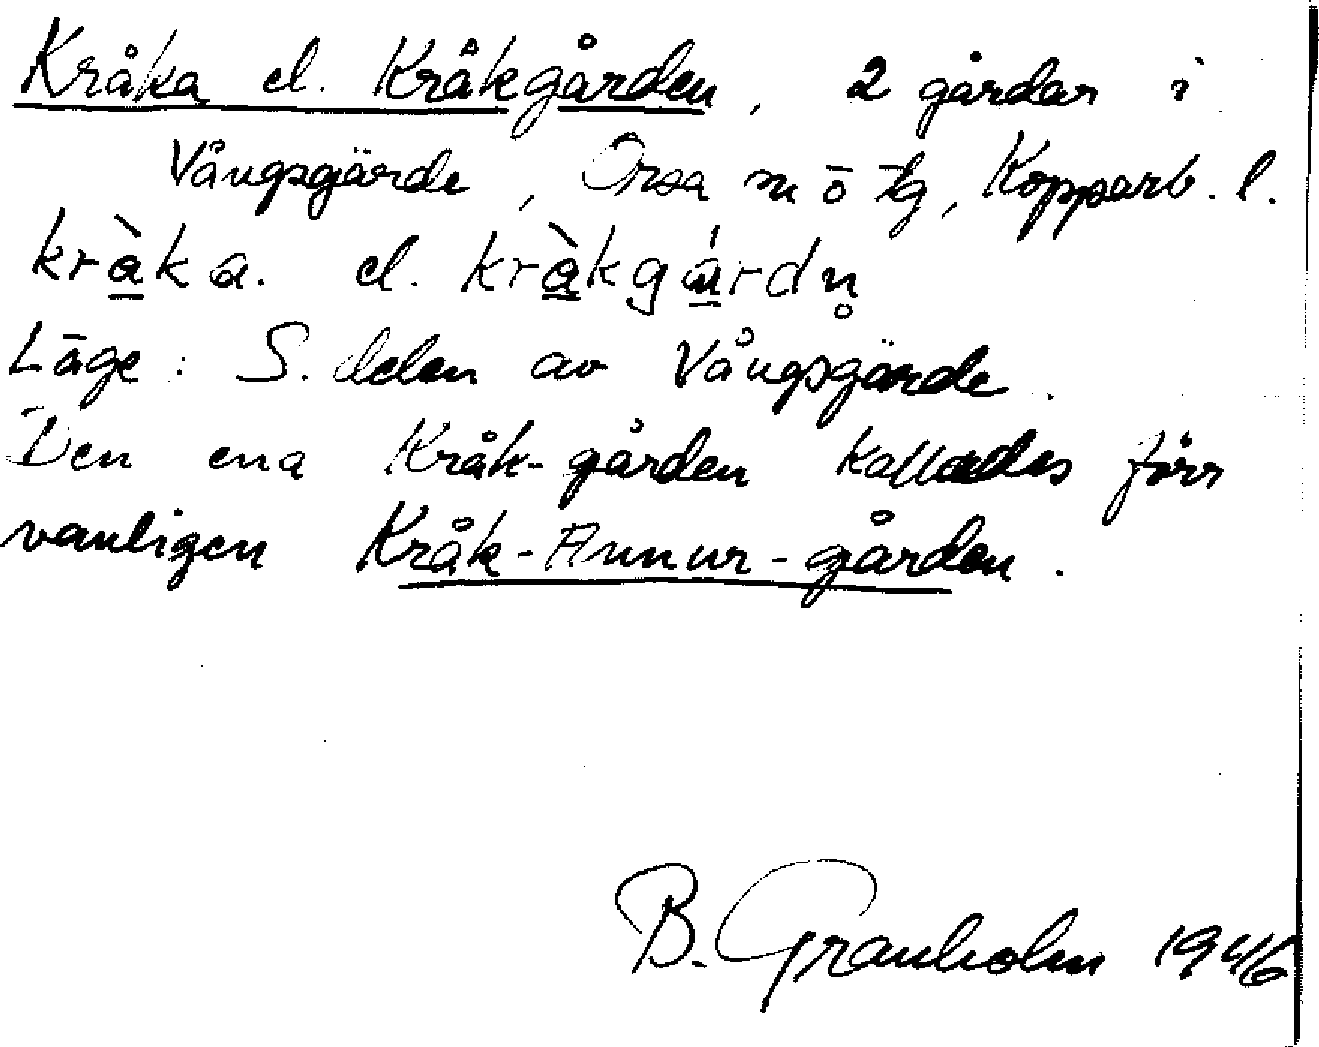 Kråka el. Kråkgården, 2 gårdar i
Vångsgärde, Orsa sn o tg, Kopparb. l.
kràka. el. kràkgárdn̥
Läge: S. delen av Vångsgärde.
Den ena Kråk-gården kallades förr
vanligen Kråk-Annur-gården.
B. Granholm 1946